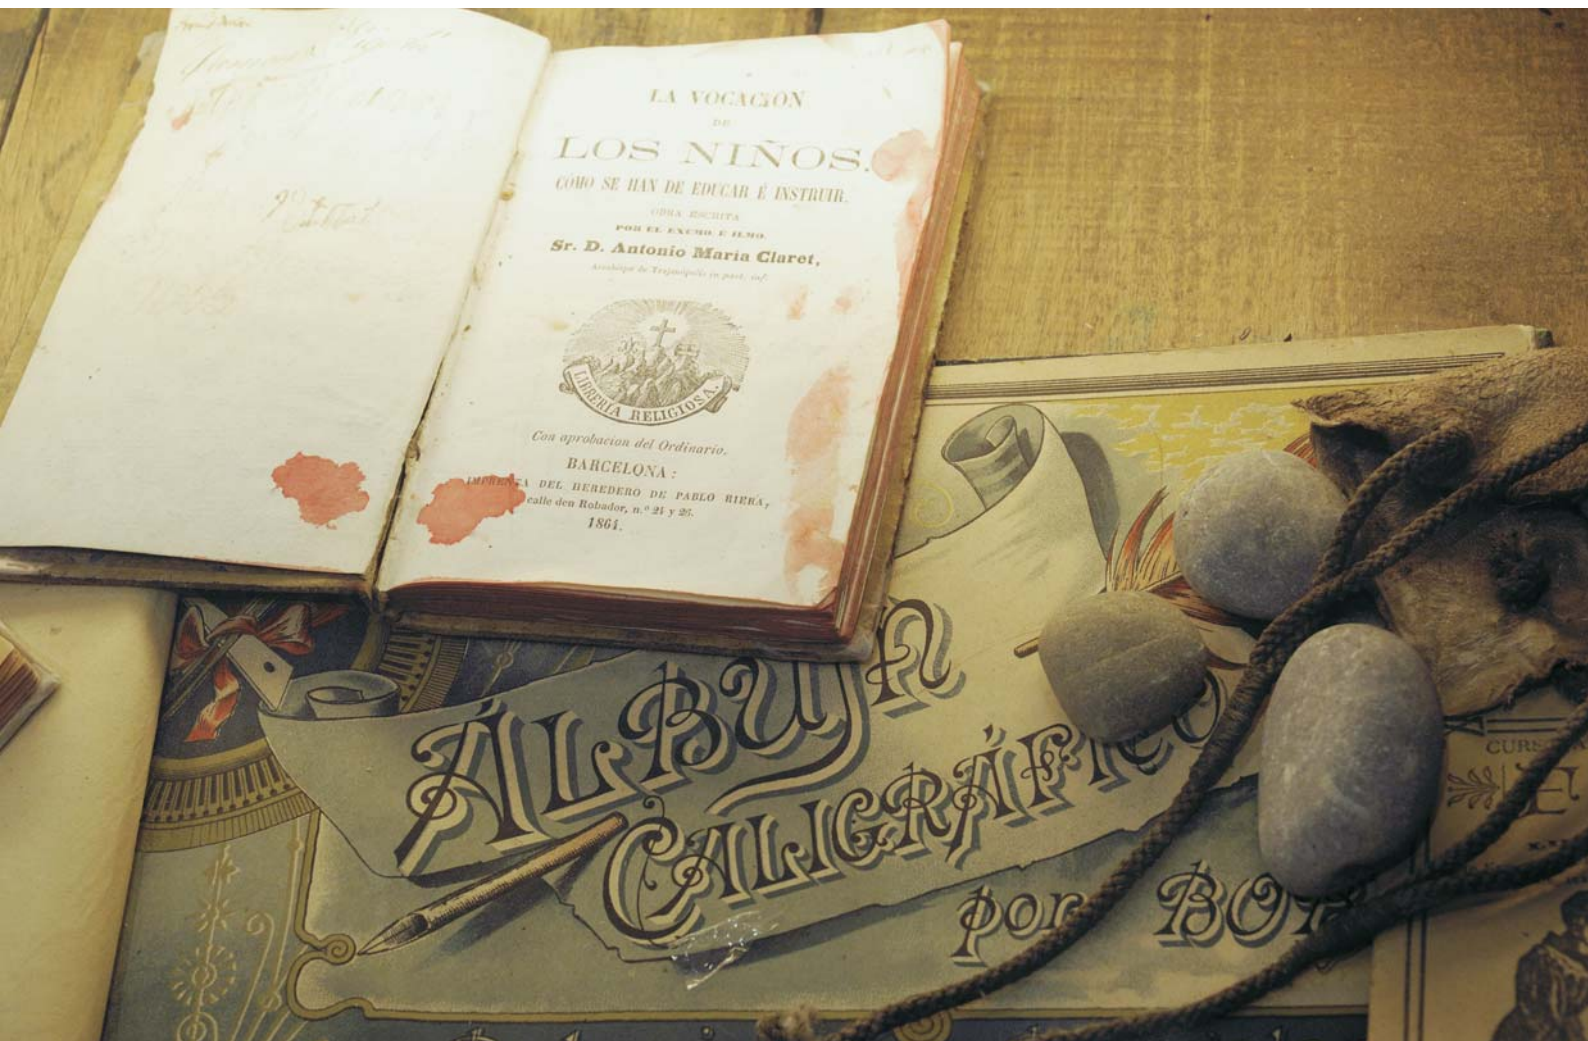 LA VOCACION
DE
LOS NIÑOS.
CÓMO SE HAN DE EDUCAR É INSTRUIR.
OBRA ESCRITA
POR EL EXCMO. É ILMO.
Sr. D. Antonio María Claret,
Arzobispo de Trajanópolis in part. inf.
LIBRERÍA RELIGIOSA.
Con aprobacion del Ordinario.
BARCELONA:
IMPRENTA DEL HEREDERO DE PABLO RIERA,
calle den Robador, n.º 24 y 26.
1864.
ÁLBUM
CALIGRÁFICO
por